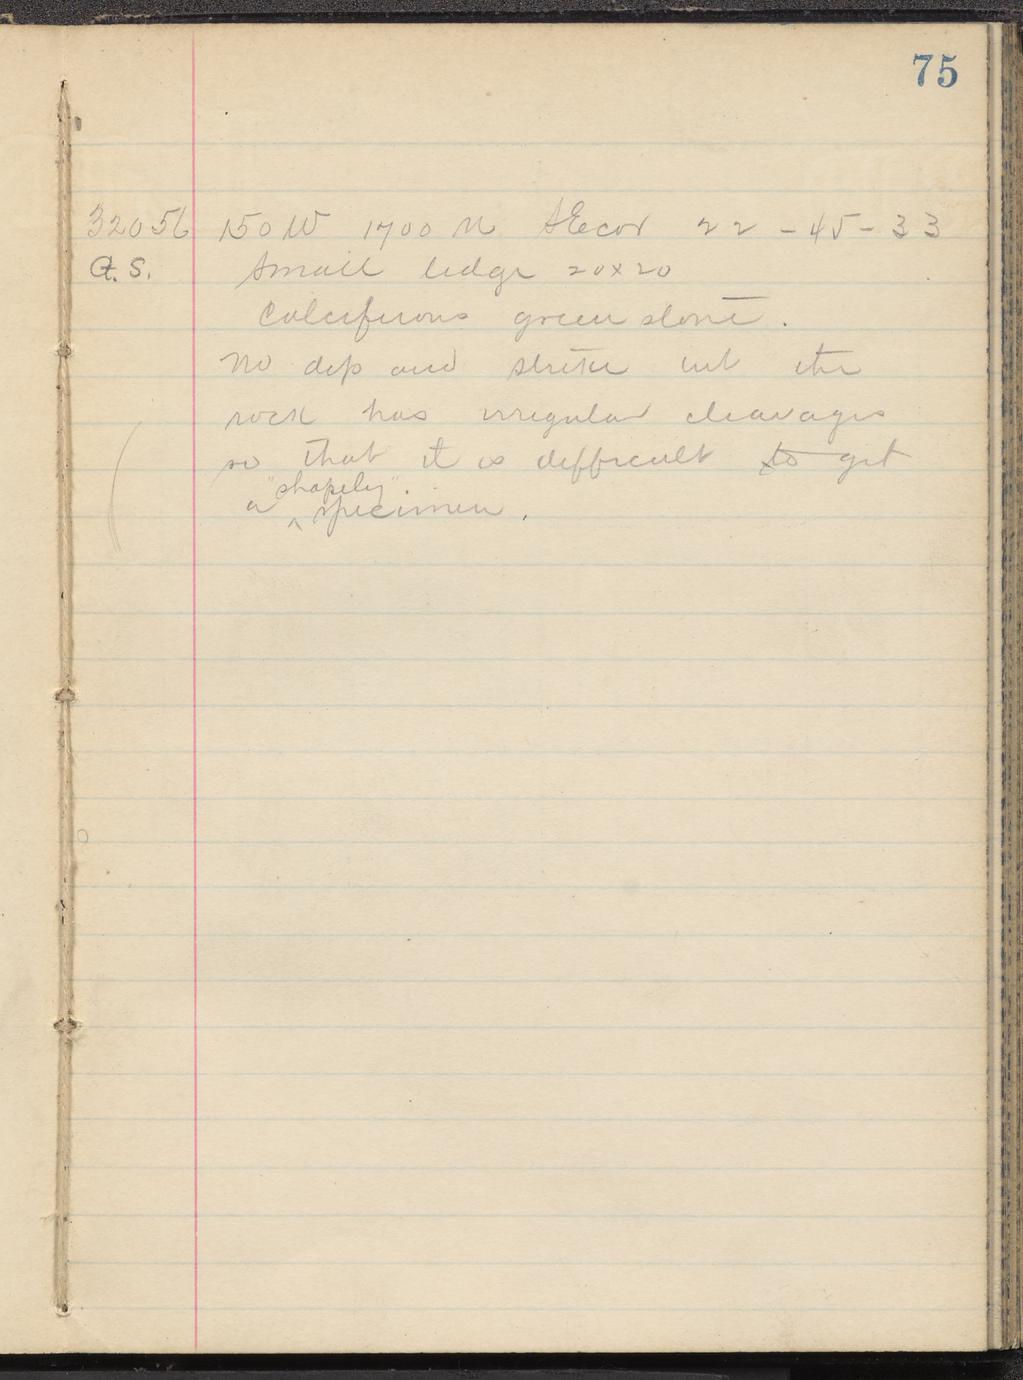 75
32056 150 W 1700 N SEcor 22-45-33
G.S. Small ledge 20x20
Calciferous greenstone.
No dip and strike but the
rock has irregular cleavages
so that it is difficult to get
"shapely"
a ^ specimen.